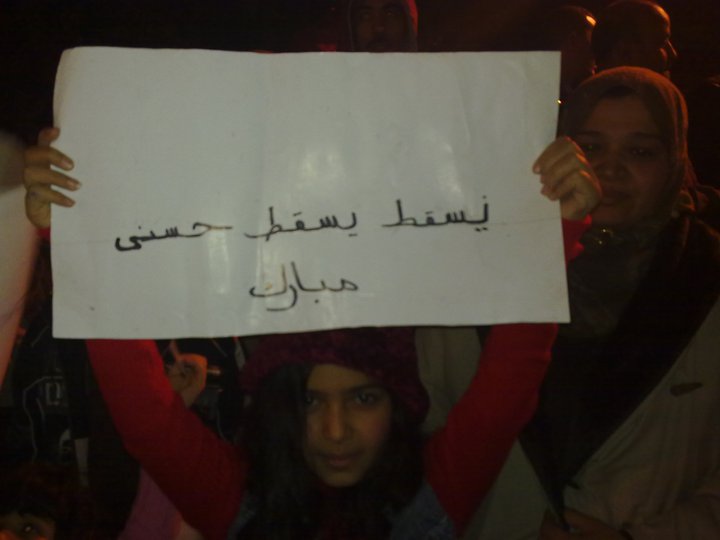 يسقط يسقط حسنى
مبارك